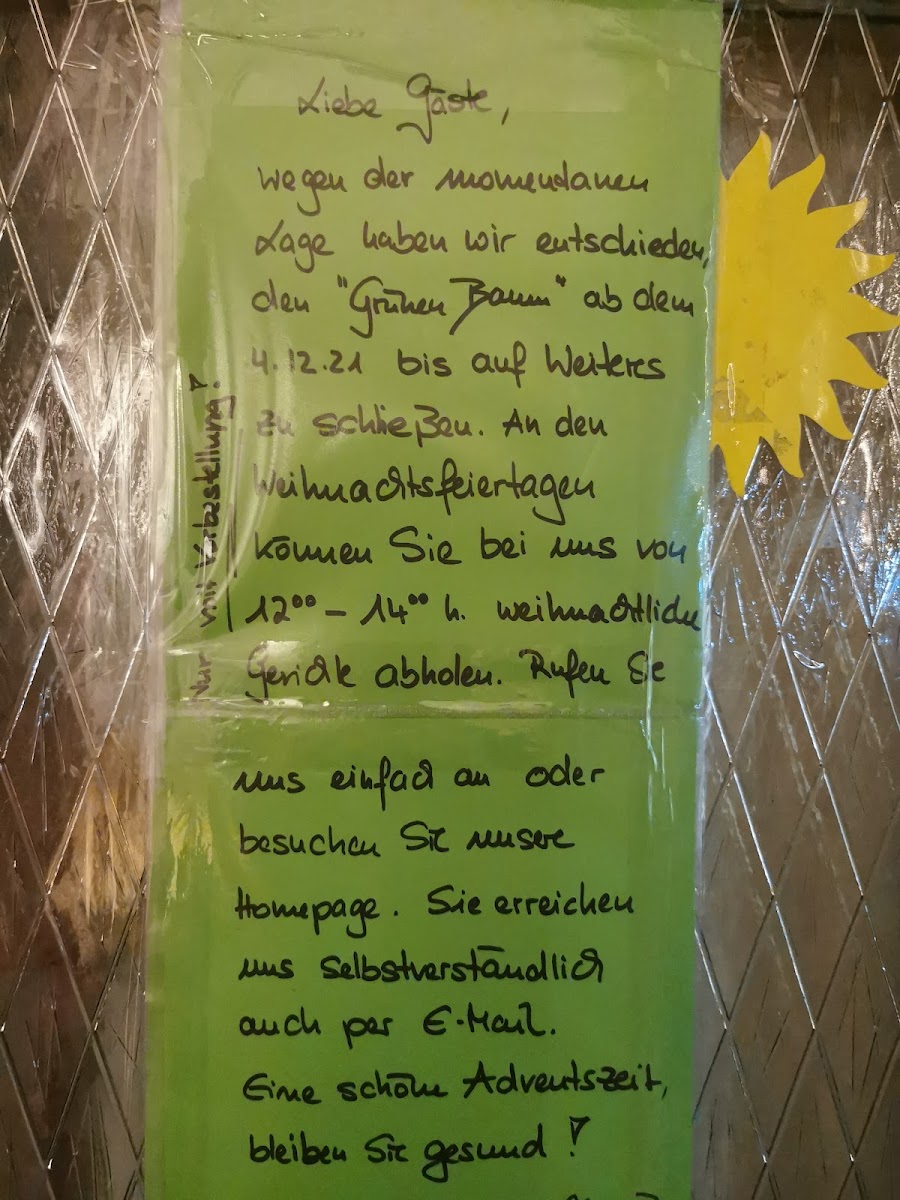 Liebe Gäste,
wegen der momentanen
Lage haben wir entschieden,
den "Grünen Baum" ab dem
4.12.21 bis auf Weiteres
zu schließen. An den
Weihnachtsfeiertagen
können Sie bei uns von
12⁰⁰ - 14⁰⁰ h. weihnachtliche
Gerichte abholen. Rufen Sie
Nur mit Vorbestellung!
uns einfach an oder
besuchen Sie unsere
Homepage. Sie erreichen
uns selbstverständlich
auch per E-Mail.
Eine schöne Adventszeit,
bleiben Sie gesund!